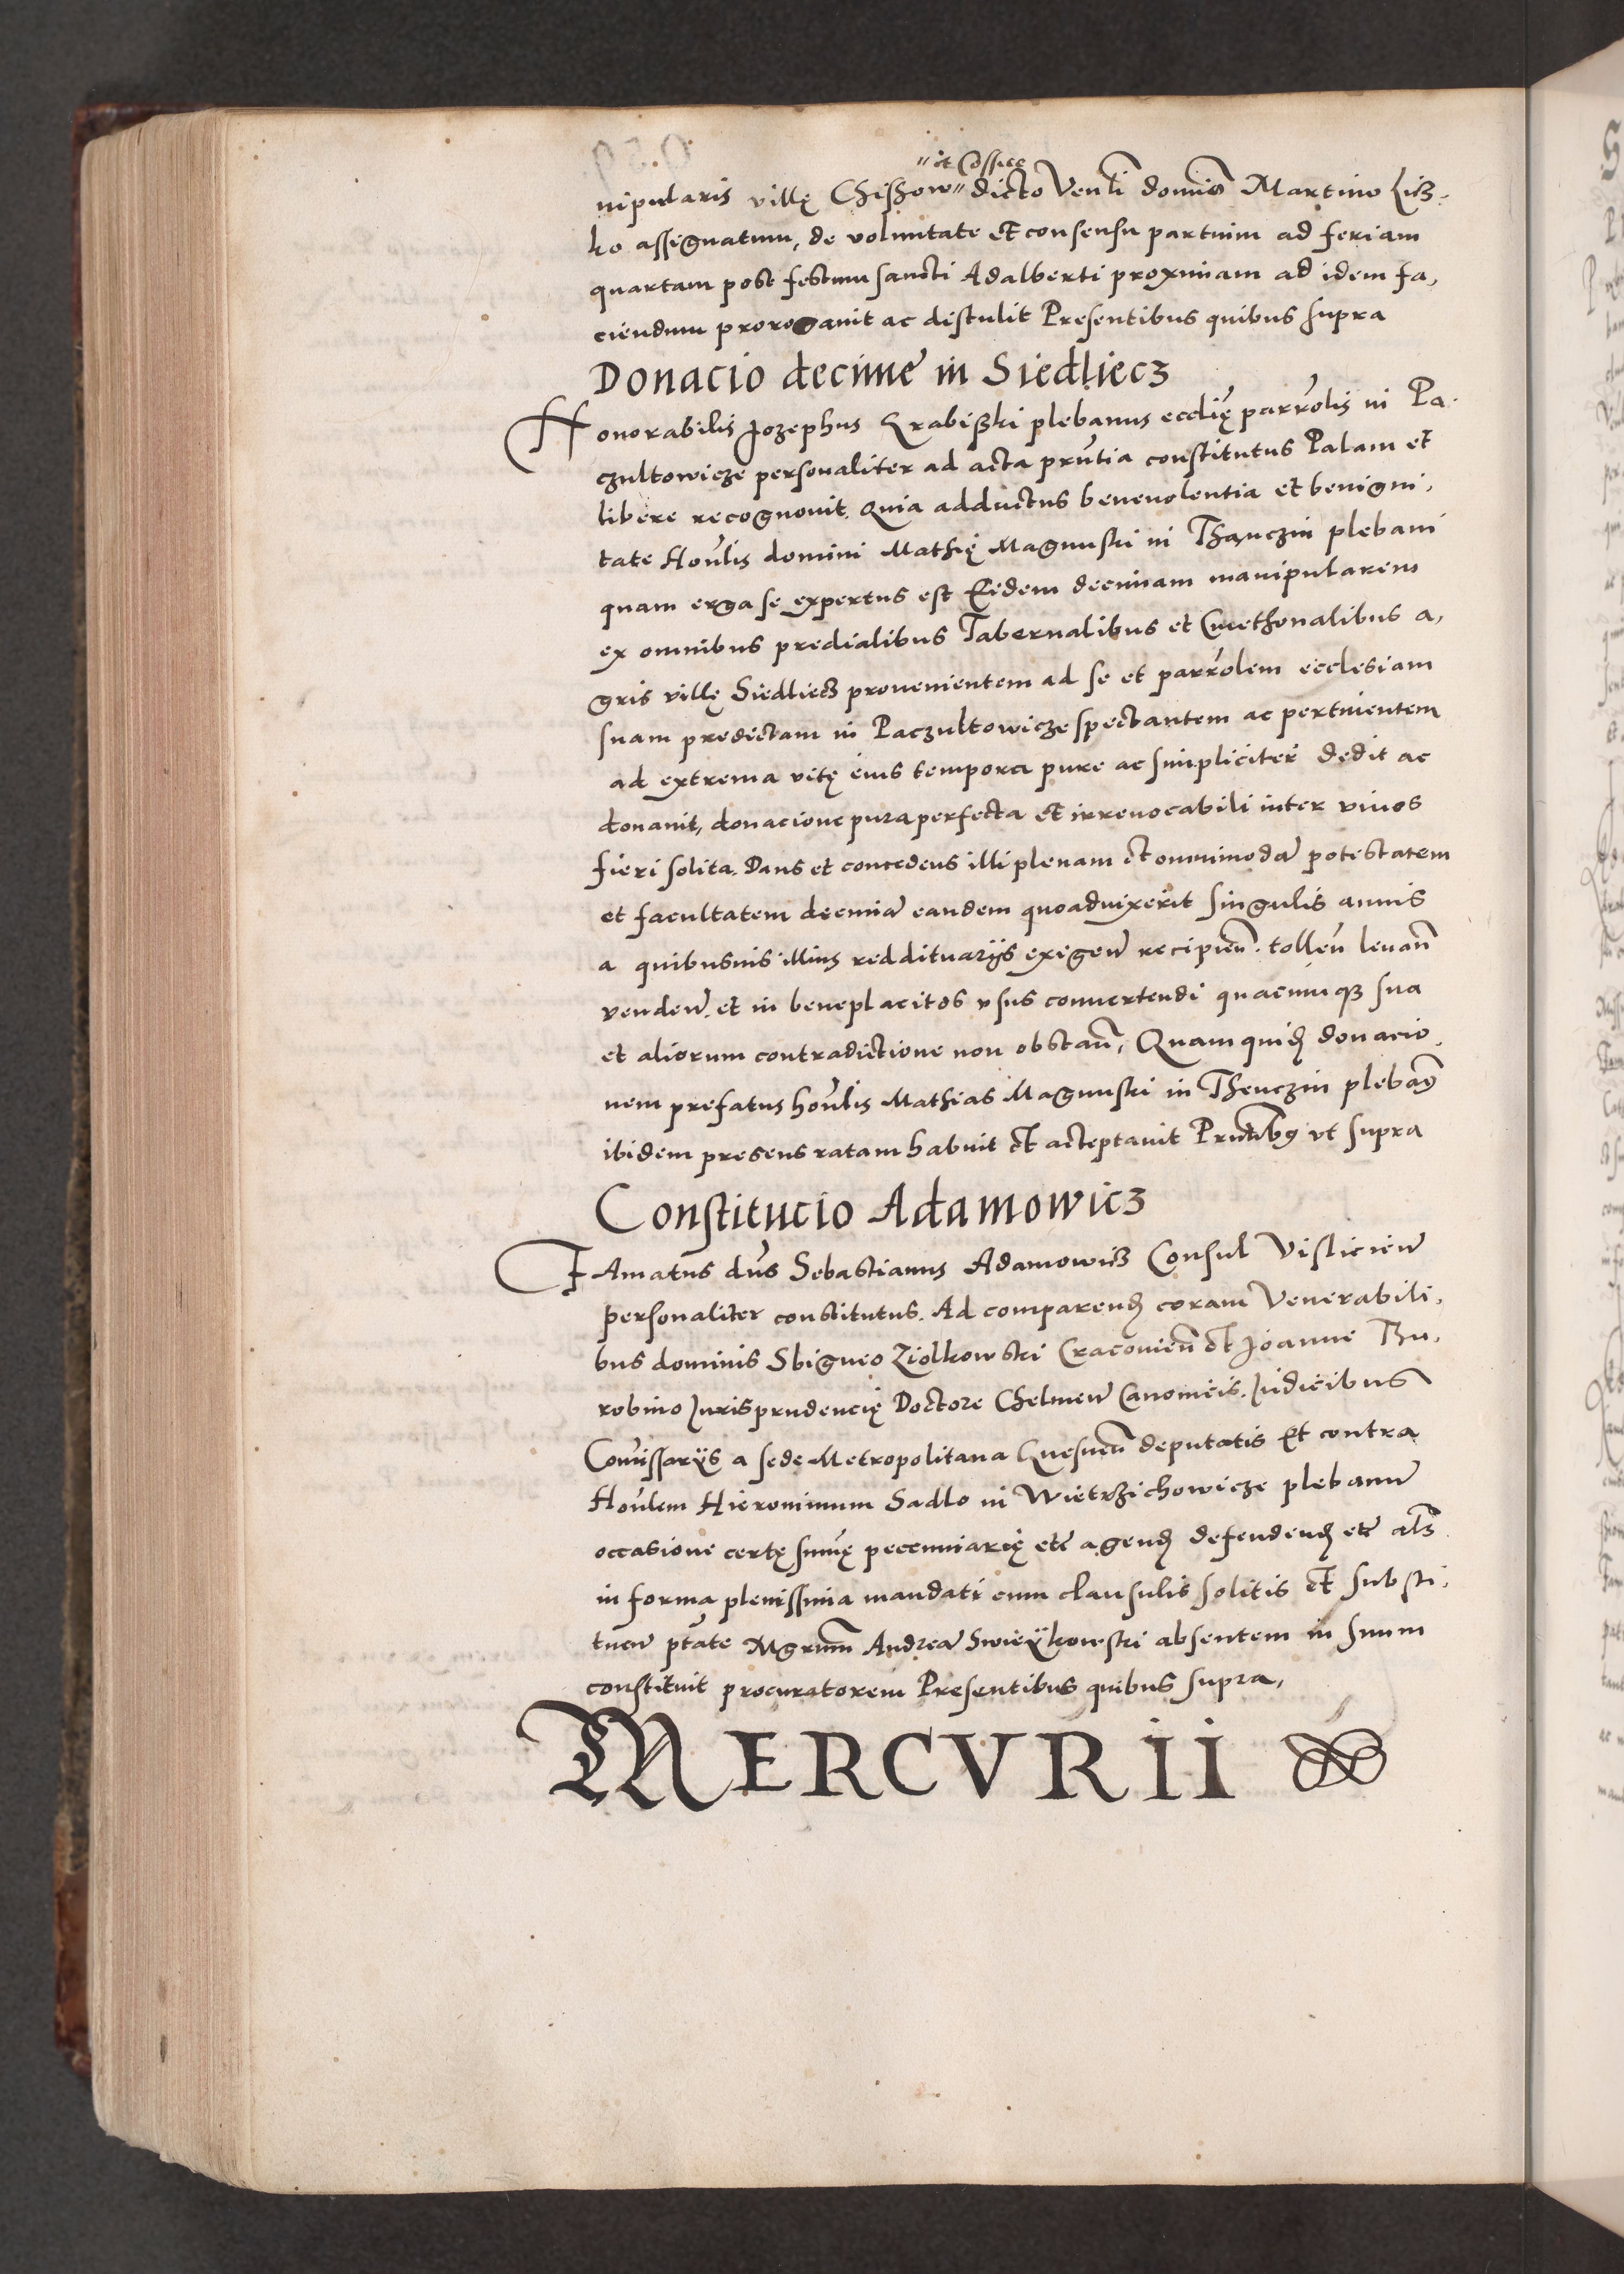 "et Cossicẹ
nipularis villę Chißow" dicto Venli domino Martino Liß-
ko assignatum, de voluntate et consensu partium ad feriam
quartam post festum sancti Adalberti proximam ad idem fa,
ciendum prorogavit ac distulit Presentibus quibus supra
Donacio decime in Siedliecz
Honorabilis Jozephus Krabißki plebanus ecclię parrolis in Pa-
czultowicze personaliter ad acta prntia constitutus Palam et
libere recognovit. Quia adductus benevolentia et benigni,
tate Honlis domini Mathię Magnuski in Thanczin plebani
quam erga se expertus est Eidem decimam manipularem
ex omnibus predialibus Tabernalibus et Cmethonalibus a,
gris villę Siedliecz provenientem ad se et parrolem ecclesiam
suam predictam in Paczultowicze spectantem ac pertinentem
ad extrema vitę eius tempora pure ac simpliciter dedit ac
donavit, donacione pura perfecta et irrevocabili inter vivos
fieri solita. Dans et concedens illi plenam et omnimodam potestatem
et facultatem decimam eandem quoadvixerit singulis annis
a quibusvis illiusreddituariis exigen recipien. tollen levan
venden. et in beneplacitos usus convertendi quacumque sua
et aliorum contradictione non obstan, Quam quid donacio.
nem prefatus honlis Mathias Magnuski in Thenczin plebang
ibidem presens ratam habuit et acceptavit Prntibg ut supra
Constitucio Adamowicz
FAmatus dns Sebastianus Adamowicz Consul Vislicien
personaliter constitutus. Ad comparend coram Venerabili,
bus dominis Sbigneo Ziolkowski Cracovien et Joanne Thu,
robino Jurisprudencię Doctore Chelmen Canonicis. Judicibus
Comissariis a sede Metropolitana Gnesnen deputatis Et contra
Honlem Hieronimum Sadlo in Wietrzichowicze plebanum
occasione certę summę peccuniarię etc agend defendend etc als
in forma plenissima mandati cum clausulis solitis et substi,
tuen ptate Mgrum Andream Swieÿkowski absentem in suum
constituit procuratorem Presentibus quibus supra,
MERCVRII